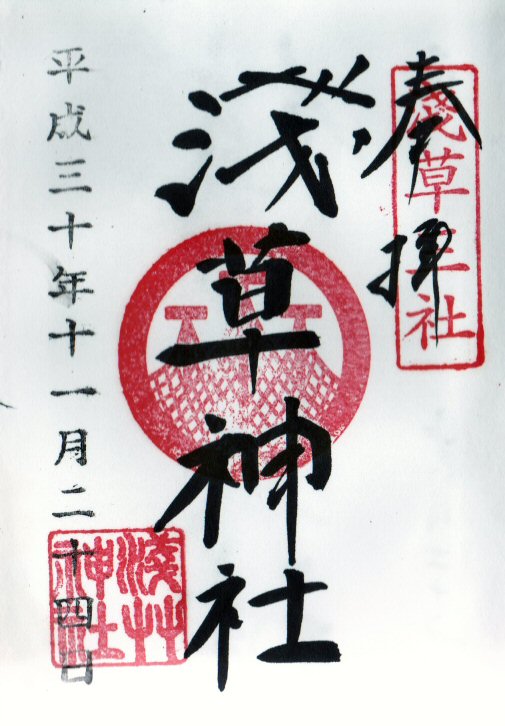 奉拝
淺草三社
淺草神社
平成三十年十一月二十四日
淺草
神社